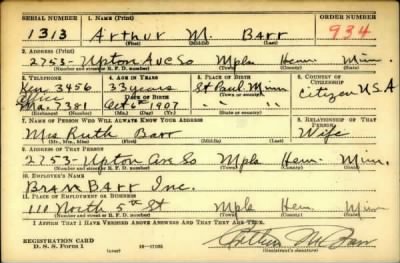 SERIAL NUMBER 1. NAME (Print) ORDER NUMBER
1313 Arthur M. Barr 934
(First) (Middle) (Last)
2. ADDRESS (Print)
2753 - Upton Ave So Mpls Henn. Minn.
(Number and street or R. F. D. number) (Town) (County) (State)
3. TELEPHONE 4. AGE IN YEARS 5. PLACE OF BIRTH 6. COUNTRY OF CITIZENSHIP
Ken 3456 33 years St Paul Minn Citizen USA
Office DATE OF BIRTH
Ma. 7381 Oct 6th 1907
(Exchange) (Number) (Mo.) (Day) (Yr.) (State or country)
7. NAME OF PERSON WHO WILL ALWAYS KNOW YOUR ADDRESS 8. RELATIONSHIP OF THAT PERSON
Mrs Ruth Barr Wife
(Mr., Mrs., Miss) (First) (Middle) (Last)
9. ADDRESS OF THAT PERSON
2753 - Upton Ave So Mpls Hen. Minn.
(Number and street or R. F. D. number) (Town) (County) (State)
10. EMPLOYER'S NAME
Barr Inc.
11. PLACE OF EMPLOYMENT OR BUSINESS
110 North 5th St Mpls Hen Minn
(Number and street or R. F. D. number) (Town) (County) (State)
I AFFIRM THAT I HAVE VERIFIED ABOVE ANSWERS AND THAT THEY ARE TRUE.
REGISTRATION CARD
D. S. S. Form 1 (over) Arthur M Barr
(Registrant's signature)